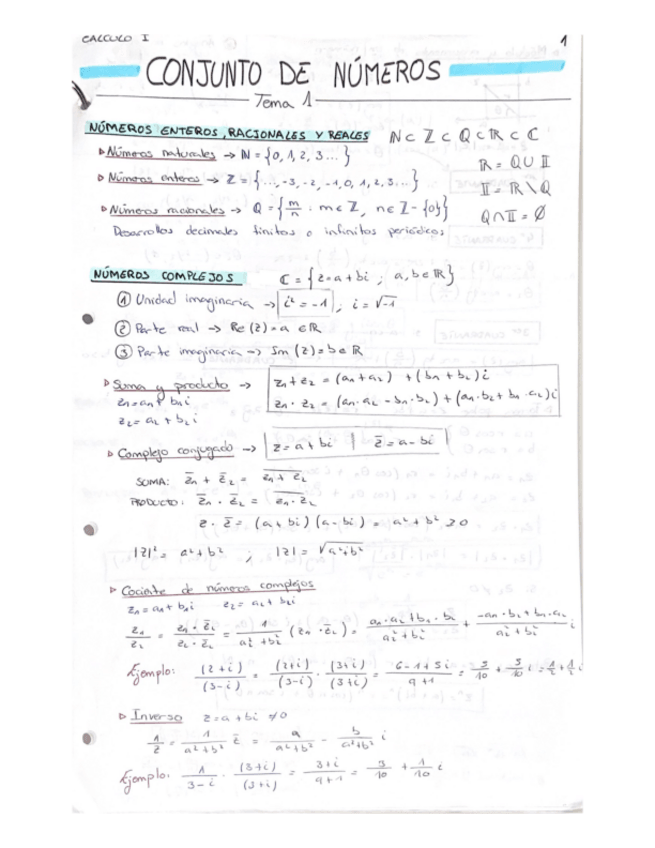 CALCULO I 1
CONJUNTO DE NÚMEROS
Tema 1
NÚMEROS ENTEROS, RACIONALES Y REALES ℕ ⊂ ℤ ⊂ ℚ ⊂ ℝ ⊂ ℂ
▷ Números naturales → ℕ = {0, 1, 2, 3 ...} ℝ = ℚ ∪ 𝕀
▷ Números enteros → ℤ = {..., -3, -2, -1, 0, 1, 2, 3...} 𝕀 = ℝ \ ℚ
▷ Números racionales → ℚ = {m/n : m ∈ ℤ, n ∈ ℤ - {0}} ℚ ∩ 𝕀 = ∅
Desarrollos decimales finitos o infinitos periódicos
NÚMEROS COMPLEJOS ℂ = {z = a + bi ; a, b ∈ ℝ}
① Unidad imaginaria → i² = -1 ; i = √-1
② Parte real → Re (z) = a ∈ ℝ
③ Parte imaginaria → Im (z) = b ∈ ℝ
▷ Suma y producto → z₁ + z₂ = (a₁ + a₂) + (b₁ + b₂) i
z₁ = a₁ + b₁i z₁ · z₂ = (a₁ · a₂ - b₁ · b₂) + (a₁ · b₂ + b₁ · a₂) i
z₂ = a₂ + b₂ i
▷ Complejo conjugado → z = a + bi | z̅ = a - bi
SUMA: z̅₁ + z̅₂ = \overline{z₁ + z₂}
PRODUCTO: z̅₁ · z̅₂ = \overline{z₁ · z₂}
z · z̅ = (a + bi) (a - bi) = a² + b² ≥ 0
|z|² = a² + b² ; |z| = √(a² + b²)
▷ Cociente de números complejos
z₁ = a₁ + b₁i z₂ = a₂ + b₂i
z₁/z₂ = (z₁ · z̅₂)/(z₂ · z̅₂) = 1/(a₂² + b₂²) (z₁ · z̅₂) = (a₁ · a₂ + b₁ · b₂)/(a₂² + b₂²) + (-a₁ · b₂ + b₁ · a₂)/(a₂² + b₂²) i
Ejemplo: (2 + i)/(3 - i) = (2+i)/(3-i) · (3+i)/(3+i) = (6 - 1 + 5i)/(9 + 1) = 5/10 + 5/10 i = 1/2 + 1/2 i
▷ Inverso z = a + bi ≠ 0
1/z = 1/(a² + b²) z̅ = a/(a² + b²) - b/(a² + b²) i
Ejemplo: 1/(3 - i) · (3+i)/(3+i) = (3+i)/(9+1) = 3/10 + 1/10 i